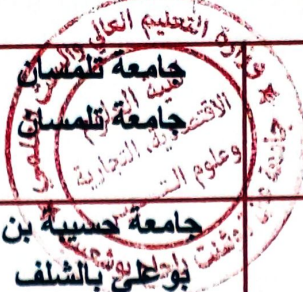 جامعة تلمسان
جامعة تلمسان
جامعة حسيبة بن
بوعلي بالشلف
وزارة التعليم العالي والبحث العلمي
الاقتصادية، التجارية
وعلوم